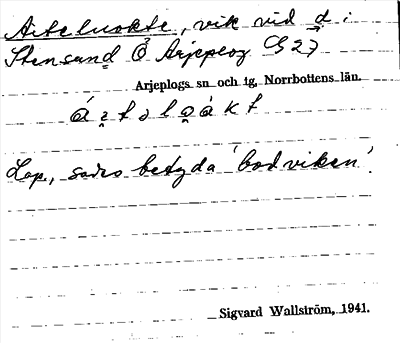 Aiteluokte, vik vid d:
Stensund Ö Arjeplog G 27
Arjeplogs sn och tg, Norrbottens län.
Lap., säges betyda 'bodviken'.
Sigvard Wallström, 1941.